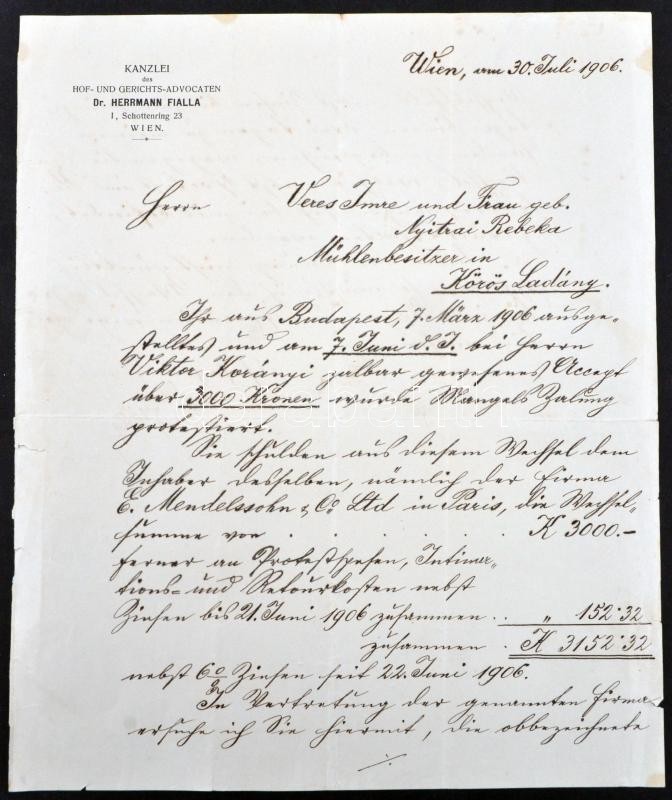 KANZLEI
des
HOF- UND GERICHTS-ADVOCATEN
Dr. HERRMANN FIALLA
I, Schottenring 23
WIEN.
Wien, am 30. Juli 1906.
Herrn Veres Imre und Frau geb.
Nyitrai Rebeka
Mühlenbesitzer in
Körös Ladány.
Ihr aus Budapest, 7. März 1906 ausge-
stelltes und am 7. Juni d. J. bei Herrn
Viktor Korányi zalbar gewesenes Accept
über 3000 Kronen wurde Mangels Zalung
protestiert.
Sie schulden aus diesem Wechsel dem
Inhaber desselben, nämlich der Firma
E. Mendelssohn & Co Ltd in Paris, die Wechsel-
summe von . . . . . . K 3000.-
ferner an Protestspesen, Intima-
tions- und Retourkosten nebst
Zinsen bis 21. Juni 1906 zusammen . . " 152·32
zusammen . K 3152·32
nebst 6% Zinsen seit 22. Juni 1906.
In Vertretung der genannten Firma
ersuche ich Sie hiermit, die obbezeichnete
./.